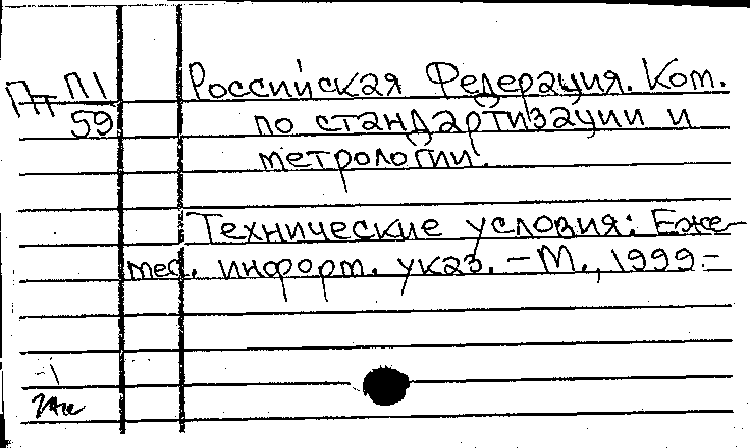 Пт П1
59
Российская Федерация. Ком.
по стандартизации и
метрологии.
Технические условия: Еже-
мес. информ. указ. – М., 1999 –